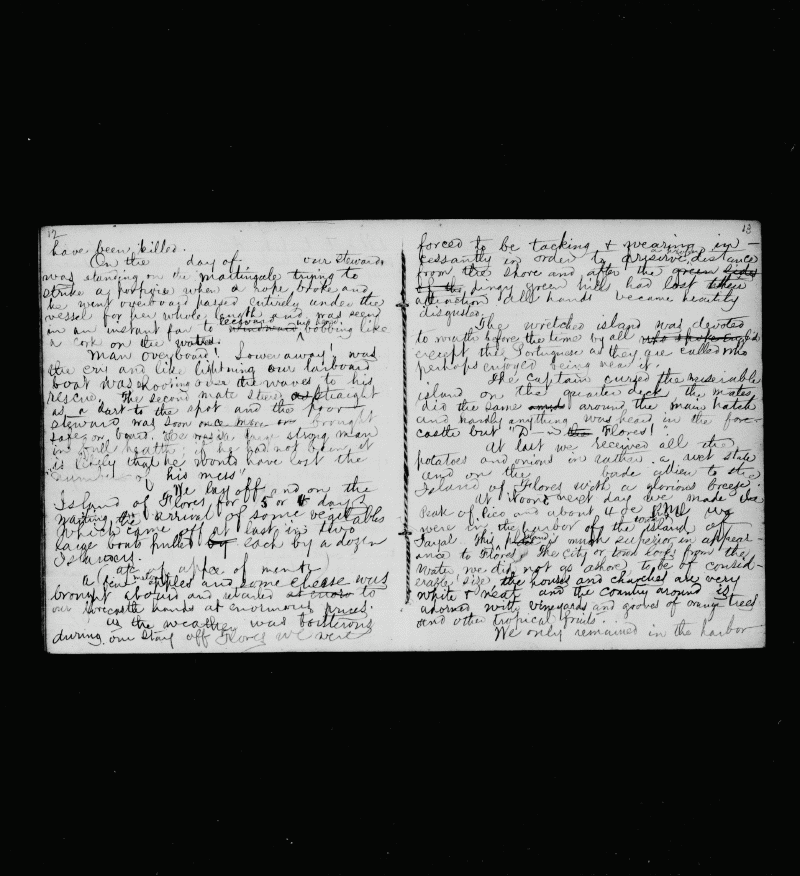 12
have been killed.
On the day of our steward
was standing on the martingale trying to
strike a porpoise when a rope broke and
he went overboard passed entirely under the
vessel for her whole length and was seen
in an instant far to leeward bobbing like
a cork on the water.
"Man overboard! Lower away" was
the cry and like lightning our larboard
boat was shooting over the waves to his
rescue. The second mate steered as straight
as a dart to the spot and the poor
steward was soon once more brought
safe on board. He was a large strong man
in full health; if he had not been it
is likely that he would have lost the
"number of his mess"
We lay off and on the
Island of Flores for 5 or 4 days
waiting the arrival of some vegetables
which came off at last in two
large boats pulled by each by a dozen
Islanders.
A few melons apples and some cheese was
brought aboard and retailed to
our forecastle hands at enormous prices.
As the weather was boisterous
during our stay off Flores we were
13
forced to be tacking & wearing in-
cessantly in order to preserve a distance
from the shore and after the green sides
of the dingy green hills had lost their
attraction all hands became heartily
disgusted.
The wretched island was devoted
to wrath before the time by all
except the Portuguese as they are called who
perhaps enjoyed being near it.
The captain cursed the miserable
island on the quarter deck the mates
did the same around the main hatch
and hardly anything was heard in the fore-
castle but "D—n the Flores!"
At last we received all the
potatoes and onions in rather a wet state
and on the bade adieu to the
Island of Flores with a glorious breeze.
At noon next day we made the
Peak of Pico and about 4 we
were in the harbor of the island of
Fayal. This is much superior in appear-
ance to Flores. The city or town looks from the
water we did not go ashore to be of consid-
erable size, the houses and churches are very
white & neat and the country around is
adorned with vineyards and groves of orange trees
and other tropical fruits.
We only remained in the harbor